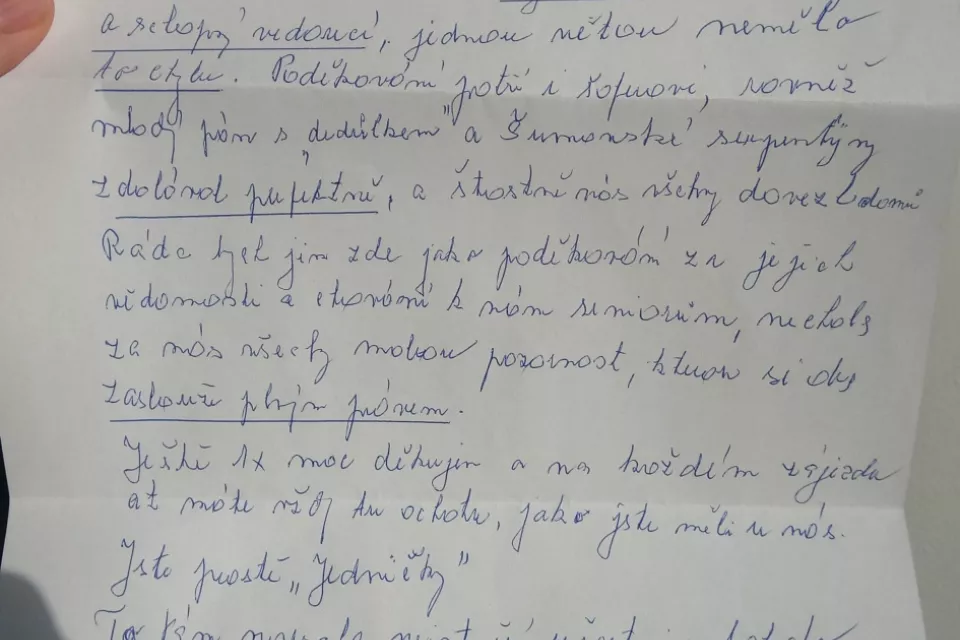 a schopný vedoucí, jednou větou neměla
chybu. Poděkování patří i řidičovi, rovněž
mladý pán s "dědulkem" a Šumavské serpentýny
zdolával perfektně, a šťastně nás všechny dovezl domů
Ráda bych jim zde jako poděkování za jejich
vědomosti a chování k nám seniorům, nechala
za nás všechny malou pozornost, kterou si oba
zaslouží plným právem.
Ještě 1x moc děkujem a na každém zájezdu
ať máte vždy tu ochotu, jako jste měli u nás.
Jste prostě „Jedničky"